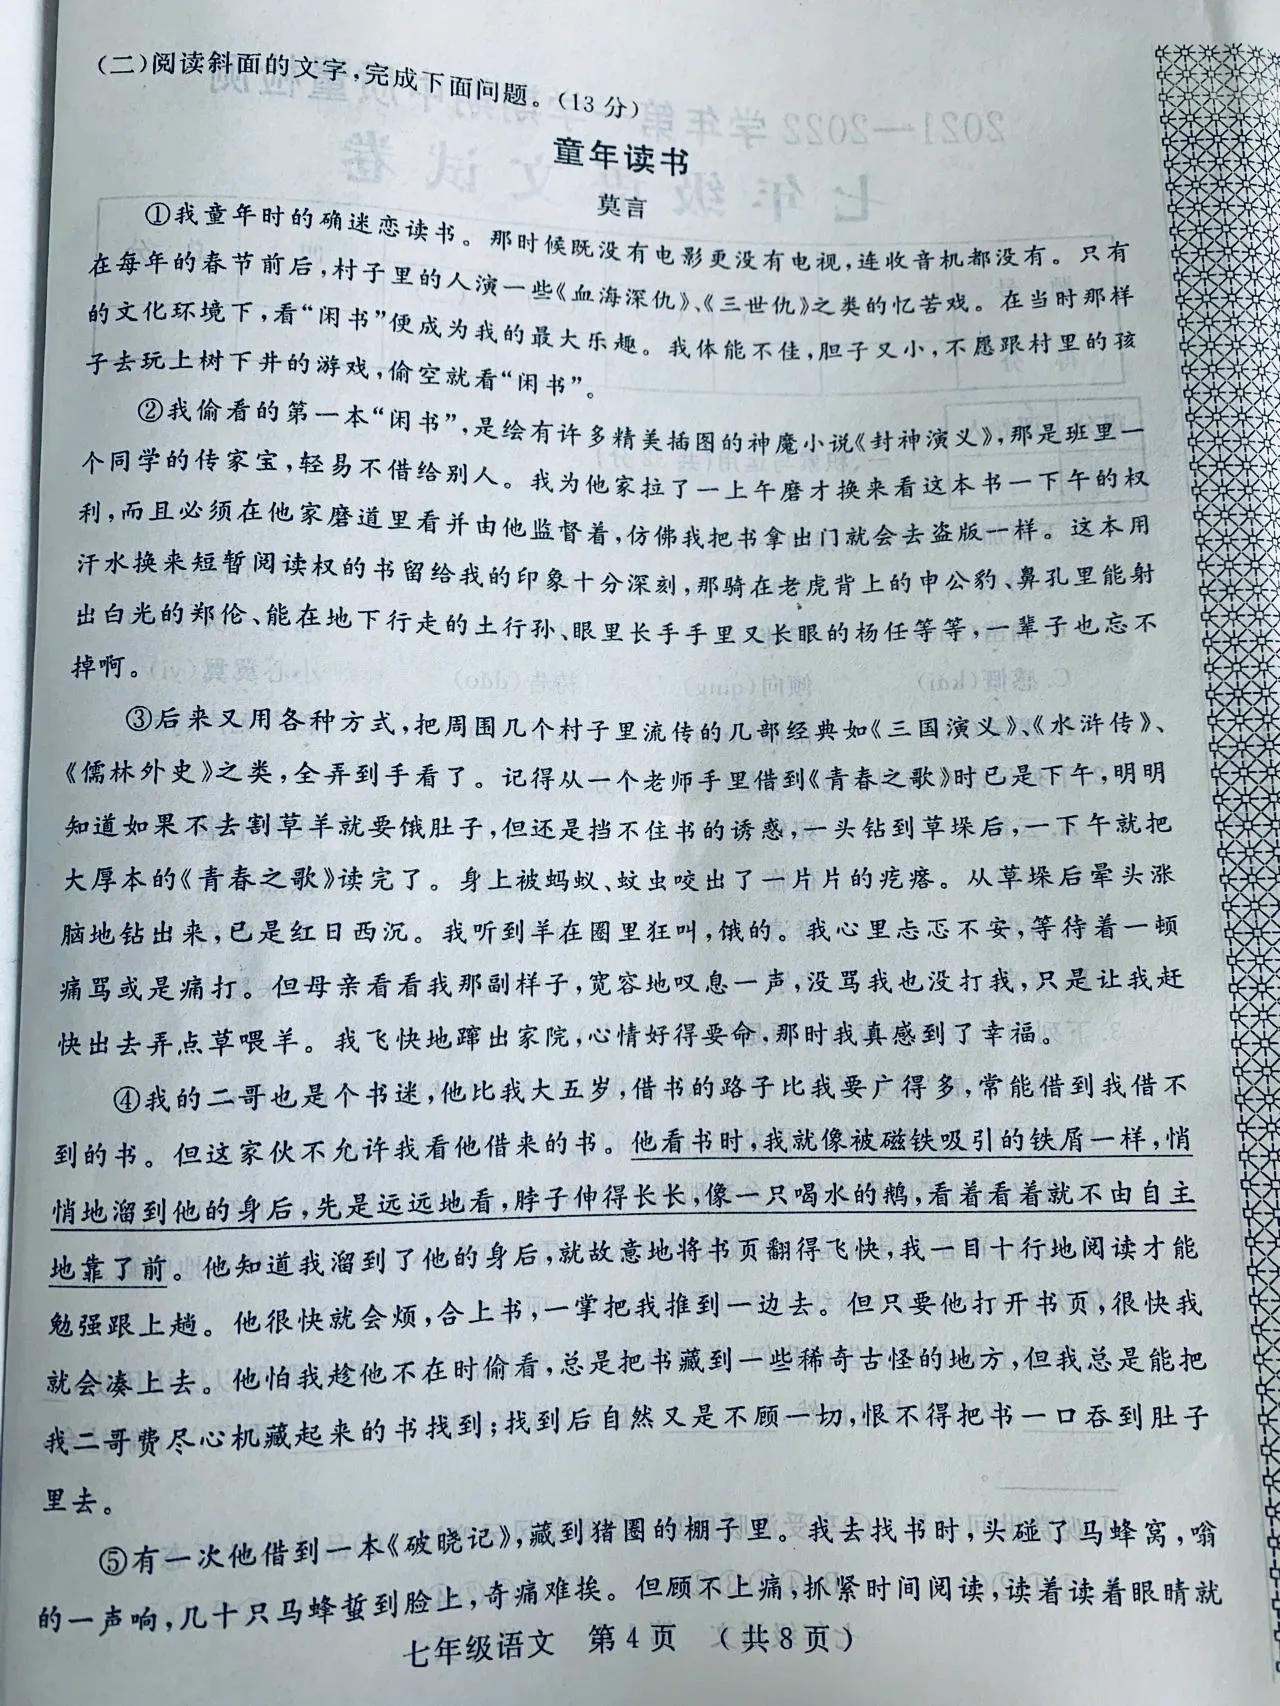 (二)阅读斜面的文字,完成下面问题。(13分)
童年读书
莫言
①我童年时的确迷恋读书。那时候既没有电影更没有电视,连收音机都没有。只有
在每年的春节前后,村子里的人演一些《血海深仇》、《三世仇》之类的忆苦戏。在当时那样
的文化环境下,看“闲书”便成为我的最大乐趣。我体能不佳,胆子又小,不愿跟村里的孩
子去玩上树下井的游戏,偷空就看“闲书”。
②我偷看的第一本“闲书”,是绘有许多精美插图的神魔小说《封神演义》,那是班里一
个同学的传家宝,轻易不借给别人。我为他家拉了一上午磨才换来看这本书一下午的权
利,而且必须在他家磨道里看并由他监督着,仿佛我把书拿出门就会去盗版一样。这本用
汗水换来短暂阅读权的书留给我的印象十分深刻,那骑在老虎背上的申公豹、鼻孔里能射
出白光的郑伦、能在地下行走的土行孙、眼里长手手里又长眼的杨任等等,一辈子也忘不
掉啊。
③后来又用各种方式,把周围几个村子里流传的几部经典如《三国演义》、《水浒传》、
《儒林外史》之类,全弄到手看了。记得从一个老师手里借到《青春之歌》时已是下午,明明
知道如果不去割草羊就要饿肚子,但还是挡不住书的诱惑,一头钻到草垛后,一下午就把
大厚本的《青春之歌》读完了。身上被蚂蚁、蚊虫咬出了一片片的疙瘩。从草垛后晕头涨
脑地钻出来,已是红日西沉。我听到羊在圈里狂叫,饿的。我心里忐忑不安,等待着一顿
痛骂或是痛打。但母亲看看我那副样子,宽容地叹息一声,没骂我也没打我,只是让我赶
快出去弄点草喂羊。我飞快地蹿出家院,心情好得要命,那时我真感到了幸福。
④我的二哥也是个书迷,他比我大五岁,借书的路子比我要广得多,常能借到我借不
到的书。但这家伙不允许我看他借来的书。他看书时,我就像被磁铁吸引的铁屑一样,悄
悄地溜到他的身后,先是远远地看,脖子伸得长长,像一只喝水的鹅,看着看着就不由自主
地靠了前。他知道我溜到了他的身后,就故意地将书页翻得飞快,我一目十行地阅读才能
勉强跟上趟。他很快就会烦,合上书,一掌把我推到一边去。但只要他打开书页,很快我
就会凑上去。他怕我趁他不在时偷看,总是把书藏到一些稀奇古怪的地方,但我总是能把
我二哥费尽心机藏起来的书找到;找到后自然又是不顾一切,恨不得把书一口吞到肚子
里去。
⑤有一次他借到一本《破晓记》,藏到猪圈的棚子里。我去找书时,头碰了马蜂窝,嗡
的一声响,几十只马蜂蜇到脸上,奇痛难挨。但顾不上痛,抓紧时间阅读,读着读着眼睛就
七年级语文 第4页 (共8页)